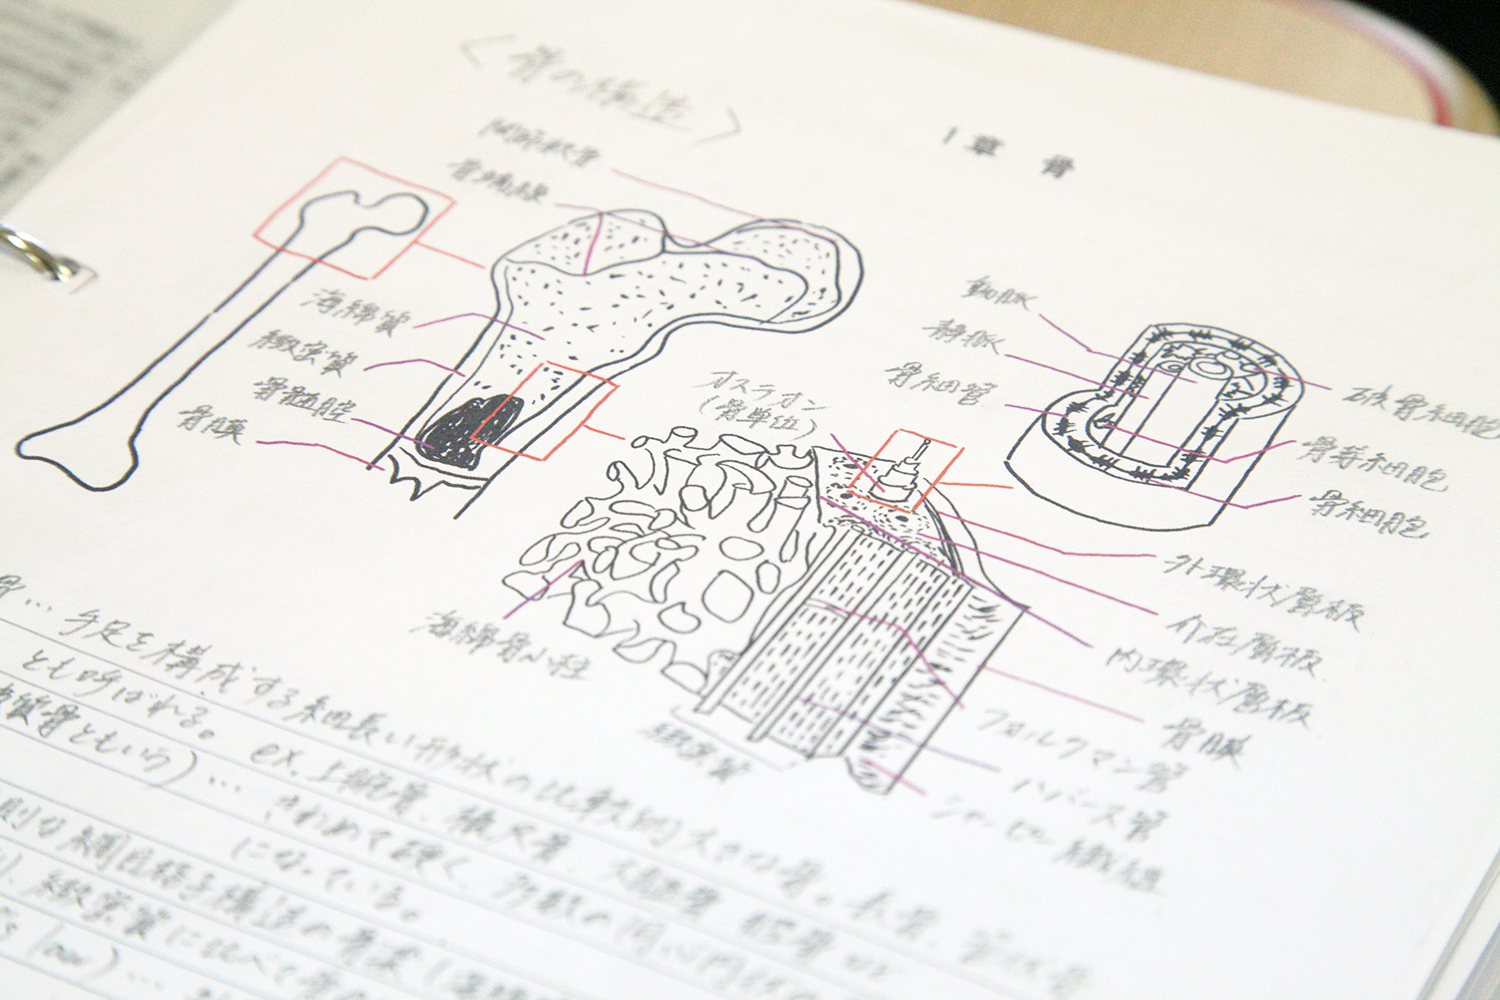 〈骨の構造〉
1章 骨
関節軟骨
骨端線
海綿質
緻密質
骨髄腔
骨膜
オステオン
(骨単位)
動脈
静脈
骨細管
破骨細胞
骨芽細胞
骨細胞
外環状層板
介在層板
内環状層板
骨膜
フォルクマン管
ハバース管
シャーピー繊維
海綿骨小柱
緻密質
骨… 手足を構成する細長い形状の比較的大きな骨。長骨、管状骨
とも呼ばれる。ex.上腕骨、橈尺骨、大腿骨、脛骨
質骨ともいう)… きわめて硬く、多数の同心円状の
になっている。
則な網目格子構造の骨梁
緻密質に比べて骨
law)…